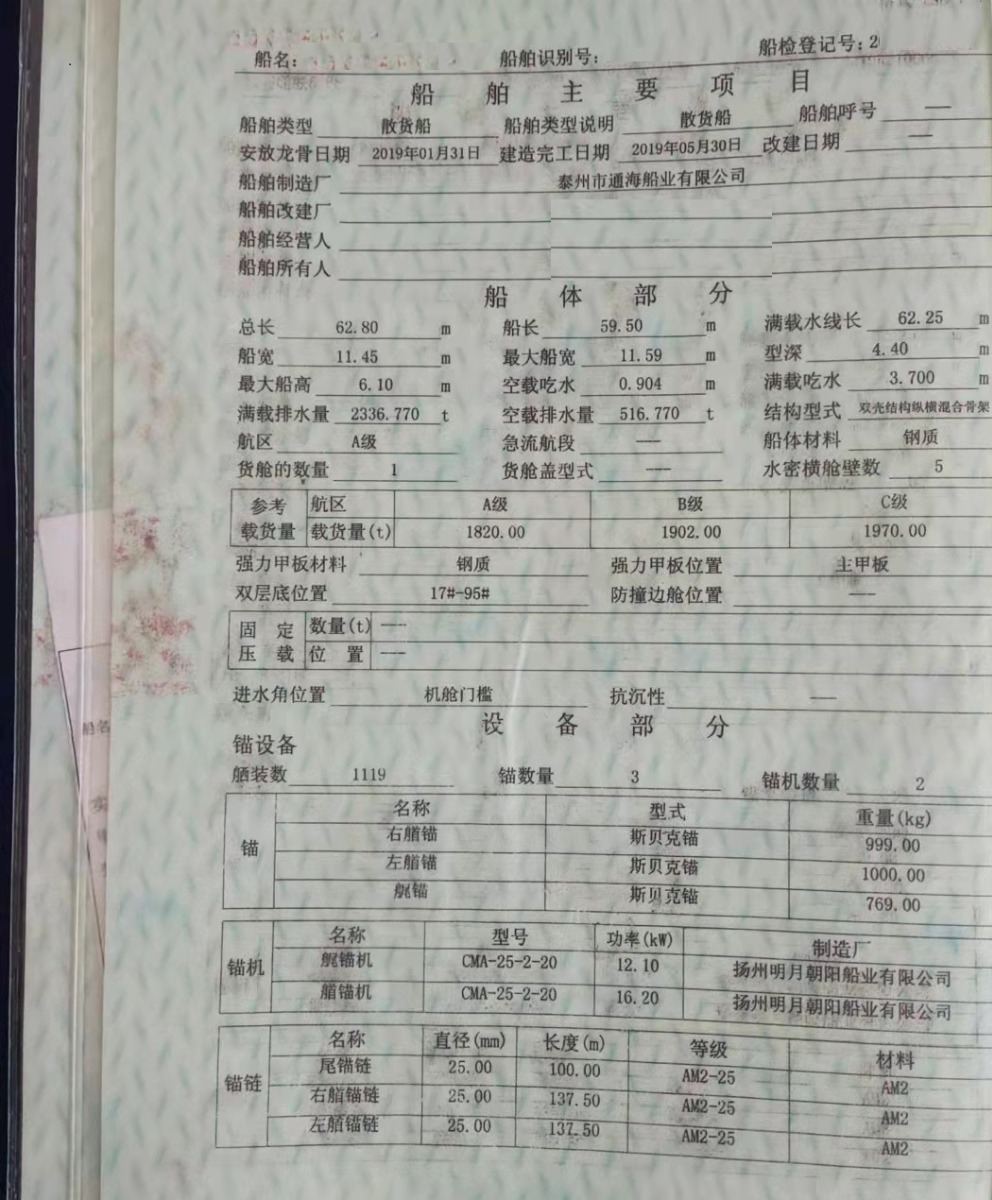 船名： 船舶识别号： 船检登记号：2
船舶主要项目
船舶类型 散货船 船舶类型说明 散货船 船舶呼号 —
安放龙骨日期 2019年01月31日 建造完工日期 2019年05月30日 改建日期 —
船舶制造厂 泰州市通海船业有限公司
船舶改建厂
船舶经营人
船舶所有人
船体部分
总长 62.80 m 船长 59.50 m 满载水线长 62.25 m
船宽 11.45 m 最大船宽 11.59 m 型深 4.40 m
最大船高 6.10 m 空载吃水 0.904 m 满载吃水 3.700 m
满载排水量 2336.770 t 空载排水量 516.770 t 结构型式 双壳结构纵横混合骨架
航区 A级 急流航段 — 船体材料 钢质
货舱的数量 1 货舱盖型式 — 水密横舱壁数 5
参考 航区 A级 B级 C级
载货量 载货量(t) 1820.00 1902.00 1970.00
强力甲板材料 钢质 强力甲板位置 主甲板
双层底位置 17#-95# 防撞边舱位置 —
固定 数量(t) —
压载 位置 —
进水角位置 机舱门槛 抗沉性 —
设备部分
锚设备
舾装数 1119 锚数量 3 锚机数量 2
锚 名称 型式 重量(kg)
右艏锚 斯贝克锚 999.00
左艏锚 斯贝克锚 1000.00
艉锚 斯贝克锚 769.00
锚机 名称 型号 功率(kW) 制造厂
艉锚机 CMA-25-2-20 12.10 扬州明月朝阳船业有限公司
艏锚机 CMA-25-2-20 16.20 扬州明月朝阳船业有限公司
锚链 名称 直径(mm) 长度(m) 等级 材料
尾锚链 25.00 100.00 AM2-25 AM2
右艏锚链 25.00 137.50 AM2-25 AM2
左艏锚链 25.00 137.50 AM2-25 AM2
船名